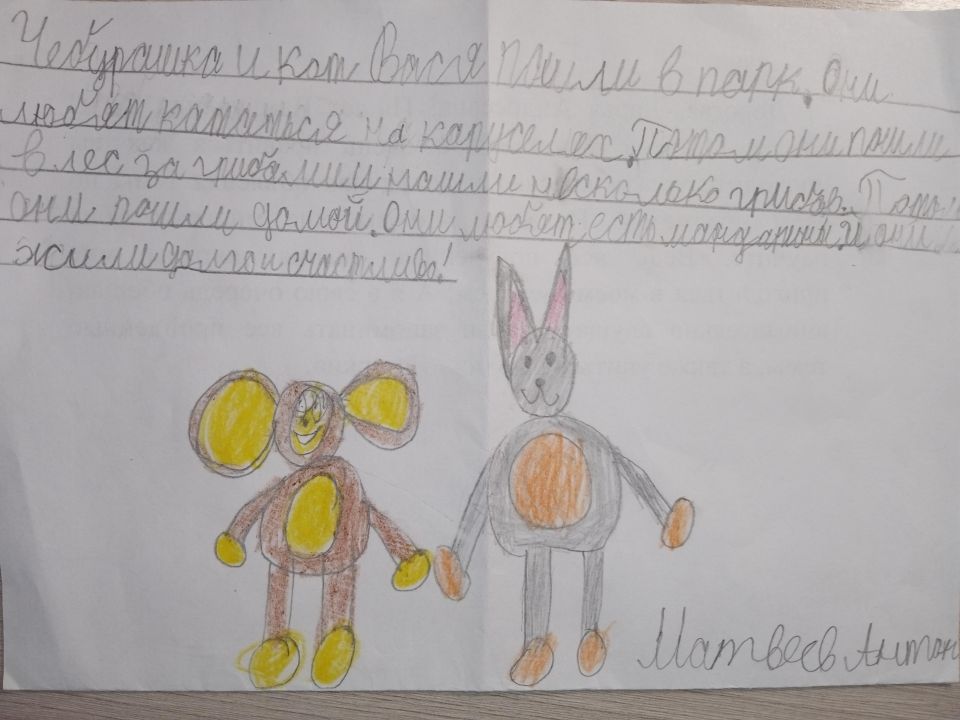 Чебурашка и кот Вася пошли в парк. Они
любят кататься на каруселях. Потом они пошли
в лес за грибами и нашли несколько грибов. Потом
они пошли домой. Они любят есть мандарины. И они
жили долго и счастливо!
Матвеев Антон